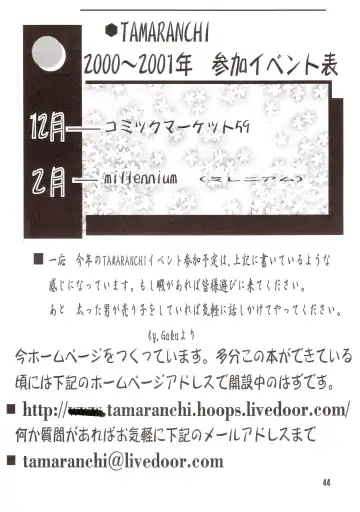 ●TAMARANCHI
2000～2001年　参加イベント表
12月 コミックマーケット59
2月 millennium (ミレニアム)
■ 一応 今年のTAMARANCHIイベント参加予定は、上記に書いているような
感じになっています。もし暇があれば皆様遊びに来てください。
あと 太った男が売り子をしていれば気軽に話しかけてやってください。
by,Gakuより
今ホームページをつくっています。多分この本ができている
頃には下記のホームページアドレスで開設中のはずです。
■ http://tamaranchi.hoops.livedoor.com/
何か質問があればお気軽に下記のメールアドレスまで
■ tamaranchi@livedoor.com
44